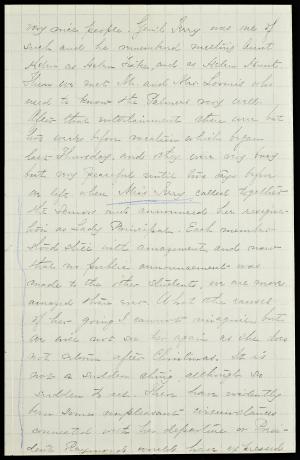 very nice people. Gen'l Terry was one of
such and he remembered meeting Aunt
Helen as Helen Fiske, and as Helen Hunt.
Then we met Mr. and Mrs. Loomis who
used to know the Palmers very well.
After that entertainment there were but
two weeks before vacation which began
last Thursday and they were very busy
but very peaceful until two days before
we left when Miss Terry called together
the Seniors and announced her resigna-
tion as Lady Principal. Each member
stood still with amazement and now
that no public announcement was
made to the other students, we are more
amazed than ever. What the causes
of her going I cannot imagine but
we will not see her again as she does
not return after Christmas. It is
not a sudden thing, although so
sudden to us. There have evidently
been some unpleasant circumstances
connected with her departure or Pres-
ident Raymond would have expressed